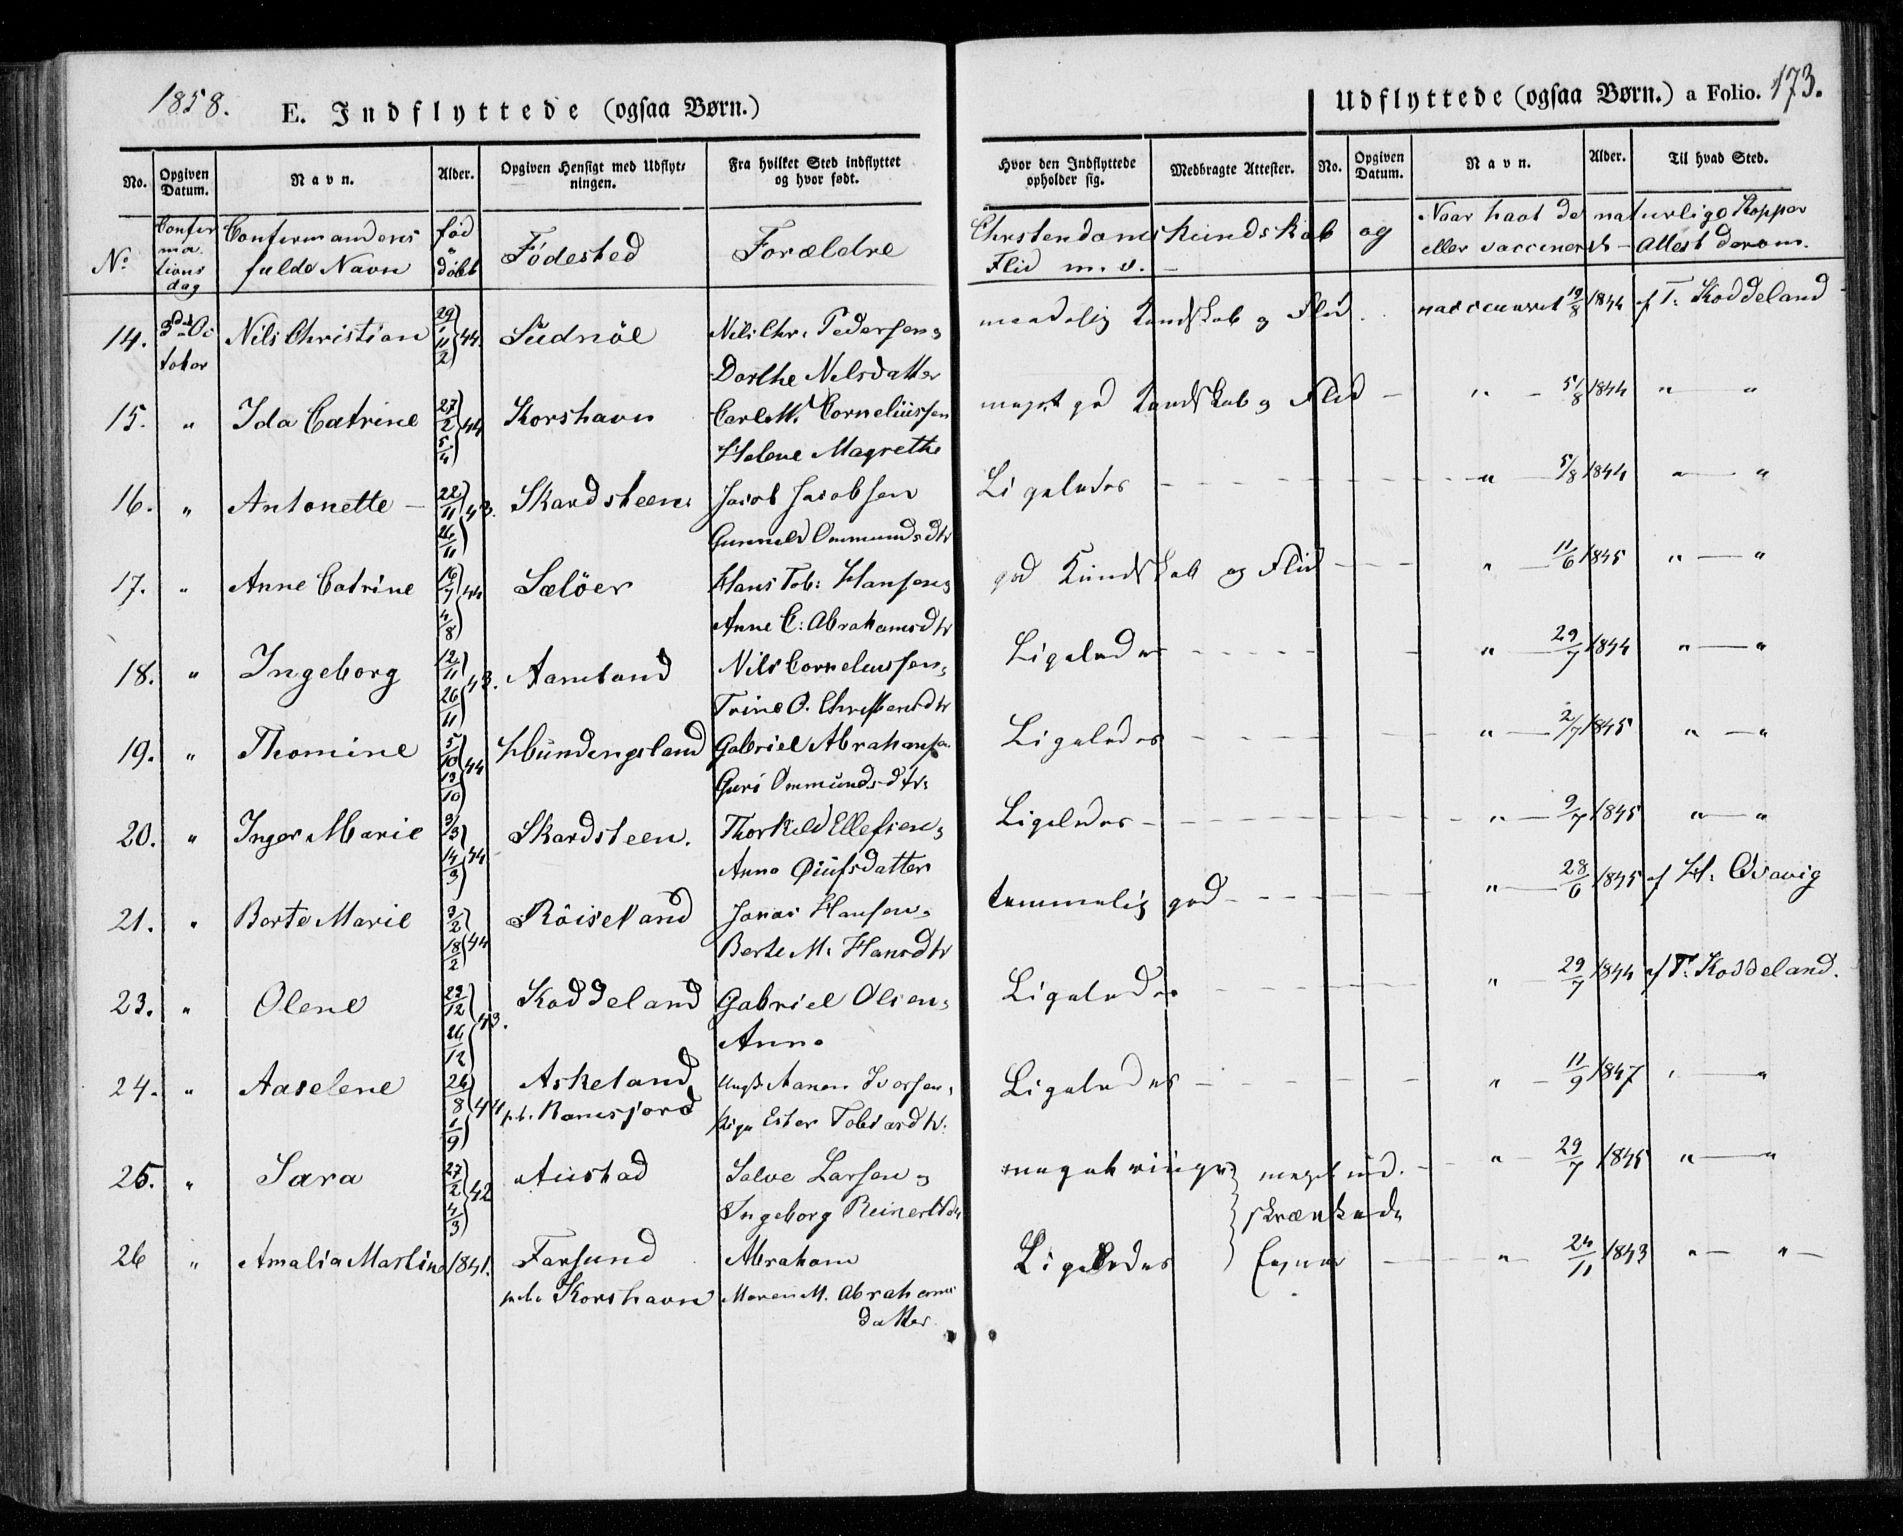 1858.
E. Indflyttede (ogsaa Børn.)
Udflyttede (ogsaa Børn.) a Folio. 173.
No. Opgiven Datum. Navn. Alder. Opgiven Hensigt med Udflytningen. Fra hvilket Sted indflyttet og hvor født. Hvor den Indflyttede opholder sig. Medbragte Attester. No. Opgiven Datum. Navn. Alder. Til hvad Sted.
No Confirmationsdag Confirmandens fulde Navn fød døbt Fødested Forældre Christendomskundskab og Flid m. v. Naar havt de naturlige Kopper eller vaccineret - Attest derom.
14. 3die October Nils Christian 29/1 11/2 44. Sudnöe Nils Chr. Pedersen, maadelig Kundskab og Flid. vaccineret 19/8 1844 af T. Koddeland
Dorthe Nilsdatter
15. " Ida Catrine 27/2 5/4 44 Korshavn Carl M. Corneliussen meget god Kundskab og Flid — " - 5/8 1844 " — "
Helene Magrethe
16. " Antonette — 22/11 26/11 43. Skardsteen. Jacob Jacobsen Ligeledes " 5/8 1844 " — "
Gunnild Ommundsdtr
17. " Anne Catrine 16/7 4/8 44 Selöer Hans Tob: Hansen, god Kundskab og Flid " — 11/6 1845 " — "
Anne C: Abrahamsdtr
18. " Ingeborg 12/11 26/11 43. Aamland Nils Corneliussen, Ligeledes " — 29/7 1844 " — "
Trine O. Christensdtr
19. " Thomine 5/10 13/10 44 Gabriel Abrahamsen Ligeledes " — 2/7 1845 " — "
Guri Ommundsdtr:
20. " Inger Marie 3/3 14/3 44 Skardsteen. Thorkild Ellefsen, Ligeledes " — 9/7 1845 " — "
Anne
21. " Berte Marie 3/2 18/2 44 Röiseland Jonas Hansen, temmelig god " — 28/6 1845 af H. Qvavig
Berte M. Hansdtr
23. " Olene 23/12 26/12 43. Koddeland Gabriel Olsen, Ligeledes " 29/7 1844 af T. Koddeland.
Anne
24. " Aaselene 26/8 1/9 44 Askeland Ungk. Aanen Iversen, Ligeledes " — 11/9 1847 " — "
Pige Ester Tobiasdtr.
25. " Sara 27/2 4/3 42 Austad Salve Larsen og meget ringe meget ind- " — 29/7 1845 " — "
Ingeborg Reinertsdtr skrænkede
26 " Amalia Martine 1841. Farsund Abraham Ligeledes Evner " 24/11 1843 " — " —
Korshavn Maren M. Abrahams
datter